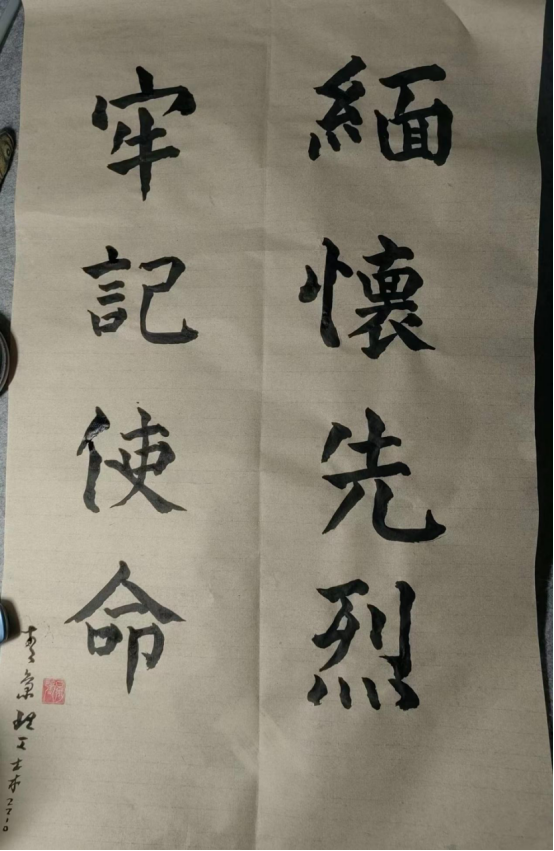 緬懷先烈
牢記使命